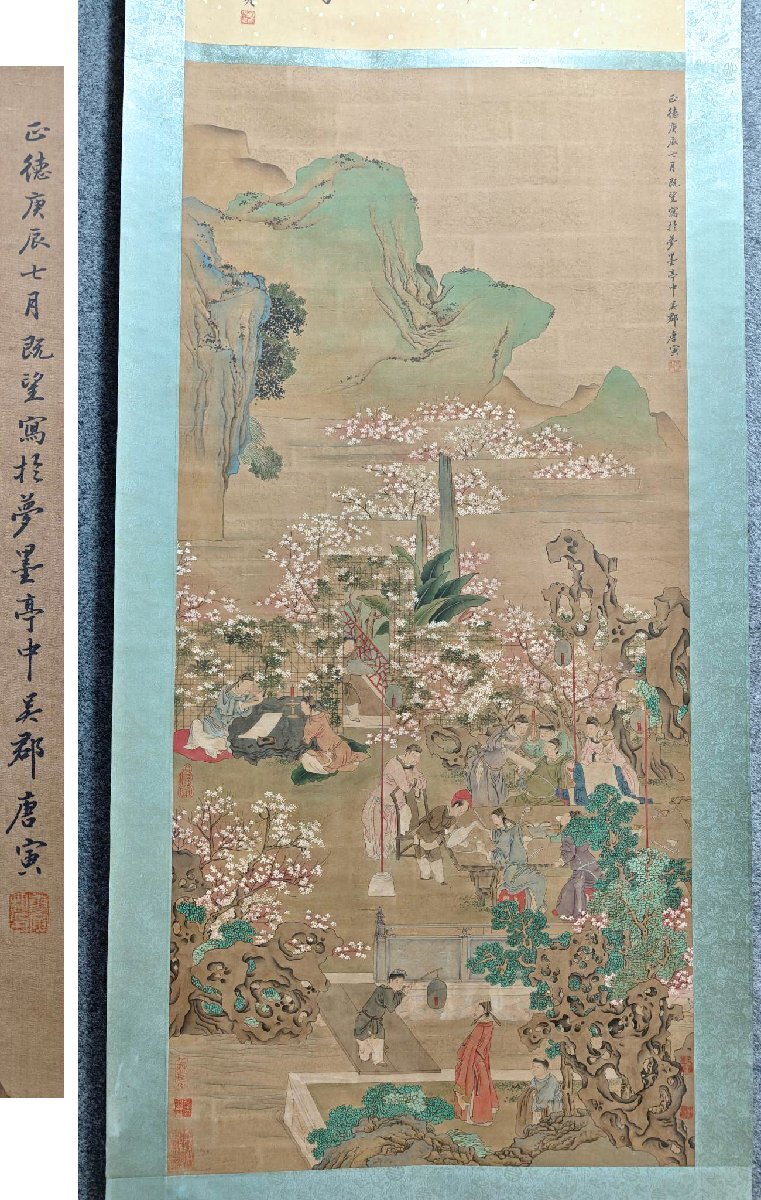 正德庚辰七月既望寫於夢墨亭中吳郡唐寅
正德庚辰七月既望寫於夢墨亭中吳郡唐寅